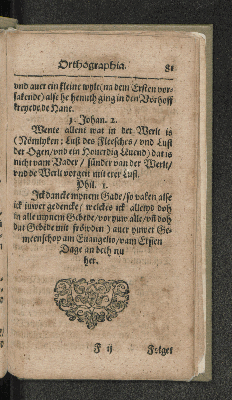 Orthographia. 81
vnd auer ein kleine wyle (na dem Ersten vor-
sakende) alse he henuth ging in den Vorhoff
kreyede de Hane.
1. Johan. 2.
Wente allent wat in der Werlt is
(Nömlyken: Lust des Fleesches / vnd Lust
der Ogen / vnd ein Houerdig Leuend) dat is
nicht vam Vader / sünder van der Werlt /
vnd de Werlt vorgeit mit erer Lust.
Phil. 1.
Ick dancke mynem Gade / so vaken alse
ick juwer gedencke / welckes ick alletyd doh
in alle mynem Gebede / vor yuw alle / vn doh
dat Gebede mit fröwden) auer yuwer Ge-
meenschop am Euangelio / vam Ersten
Dage an beth nu
her.
F ij Folget